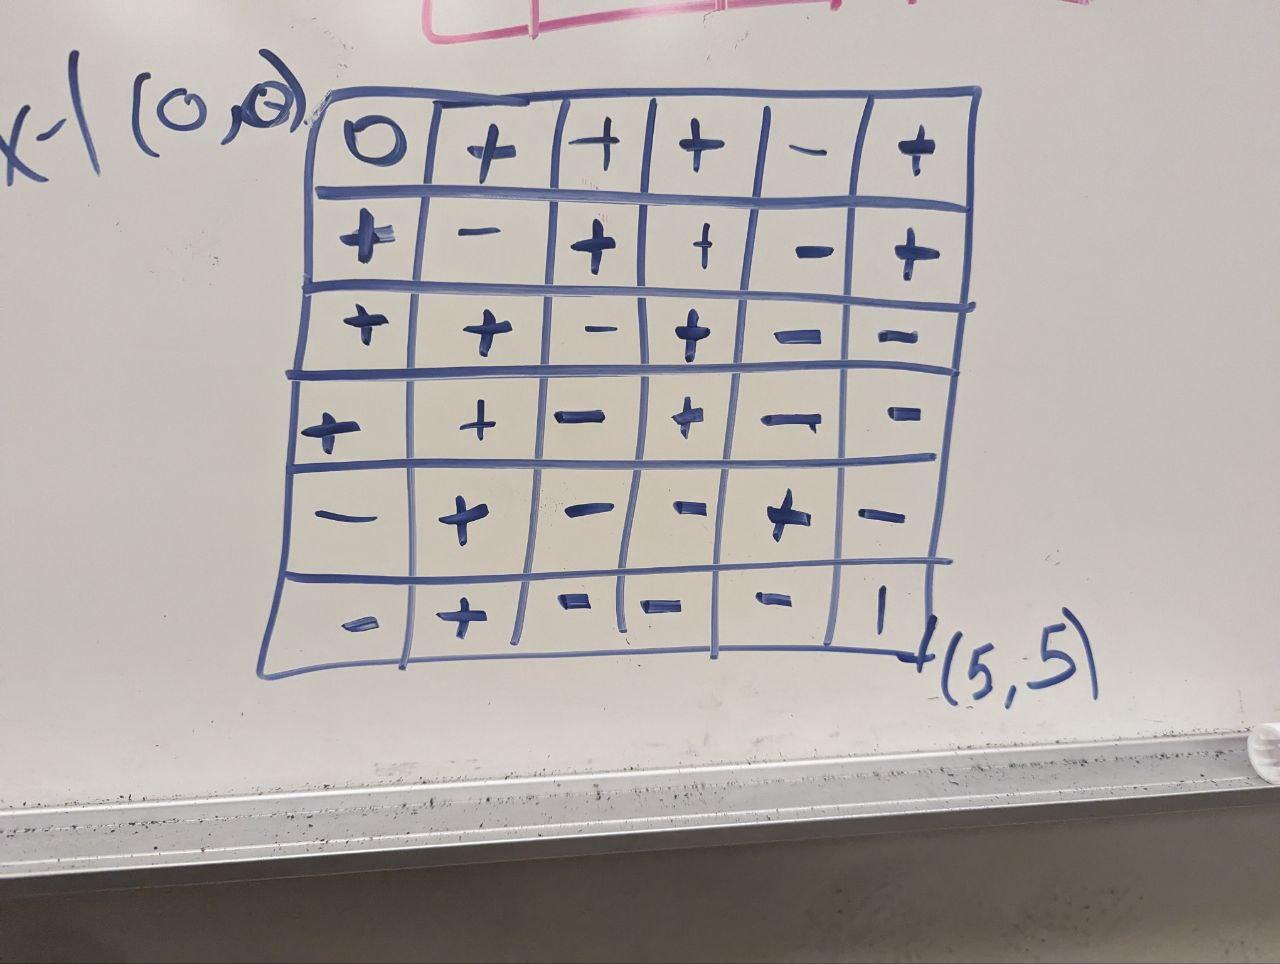 x-1 (0,0)
0 + + + - +
+ - + + - +
+ + - + - -
+ + - + - -
- + - - + -
- + - - - 1
(5,5)